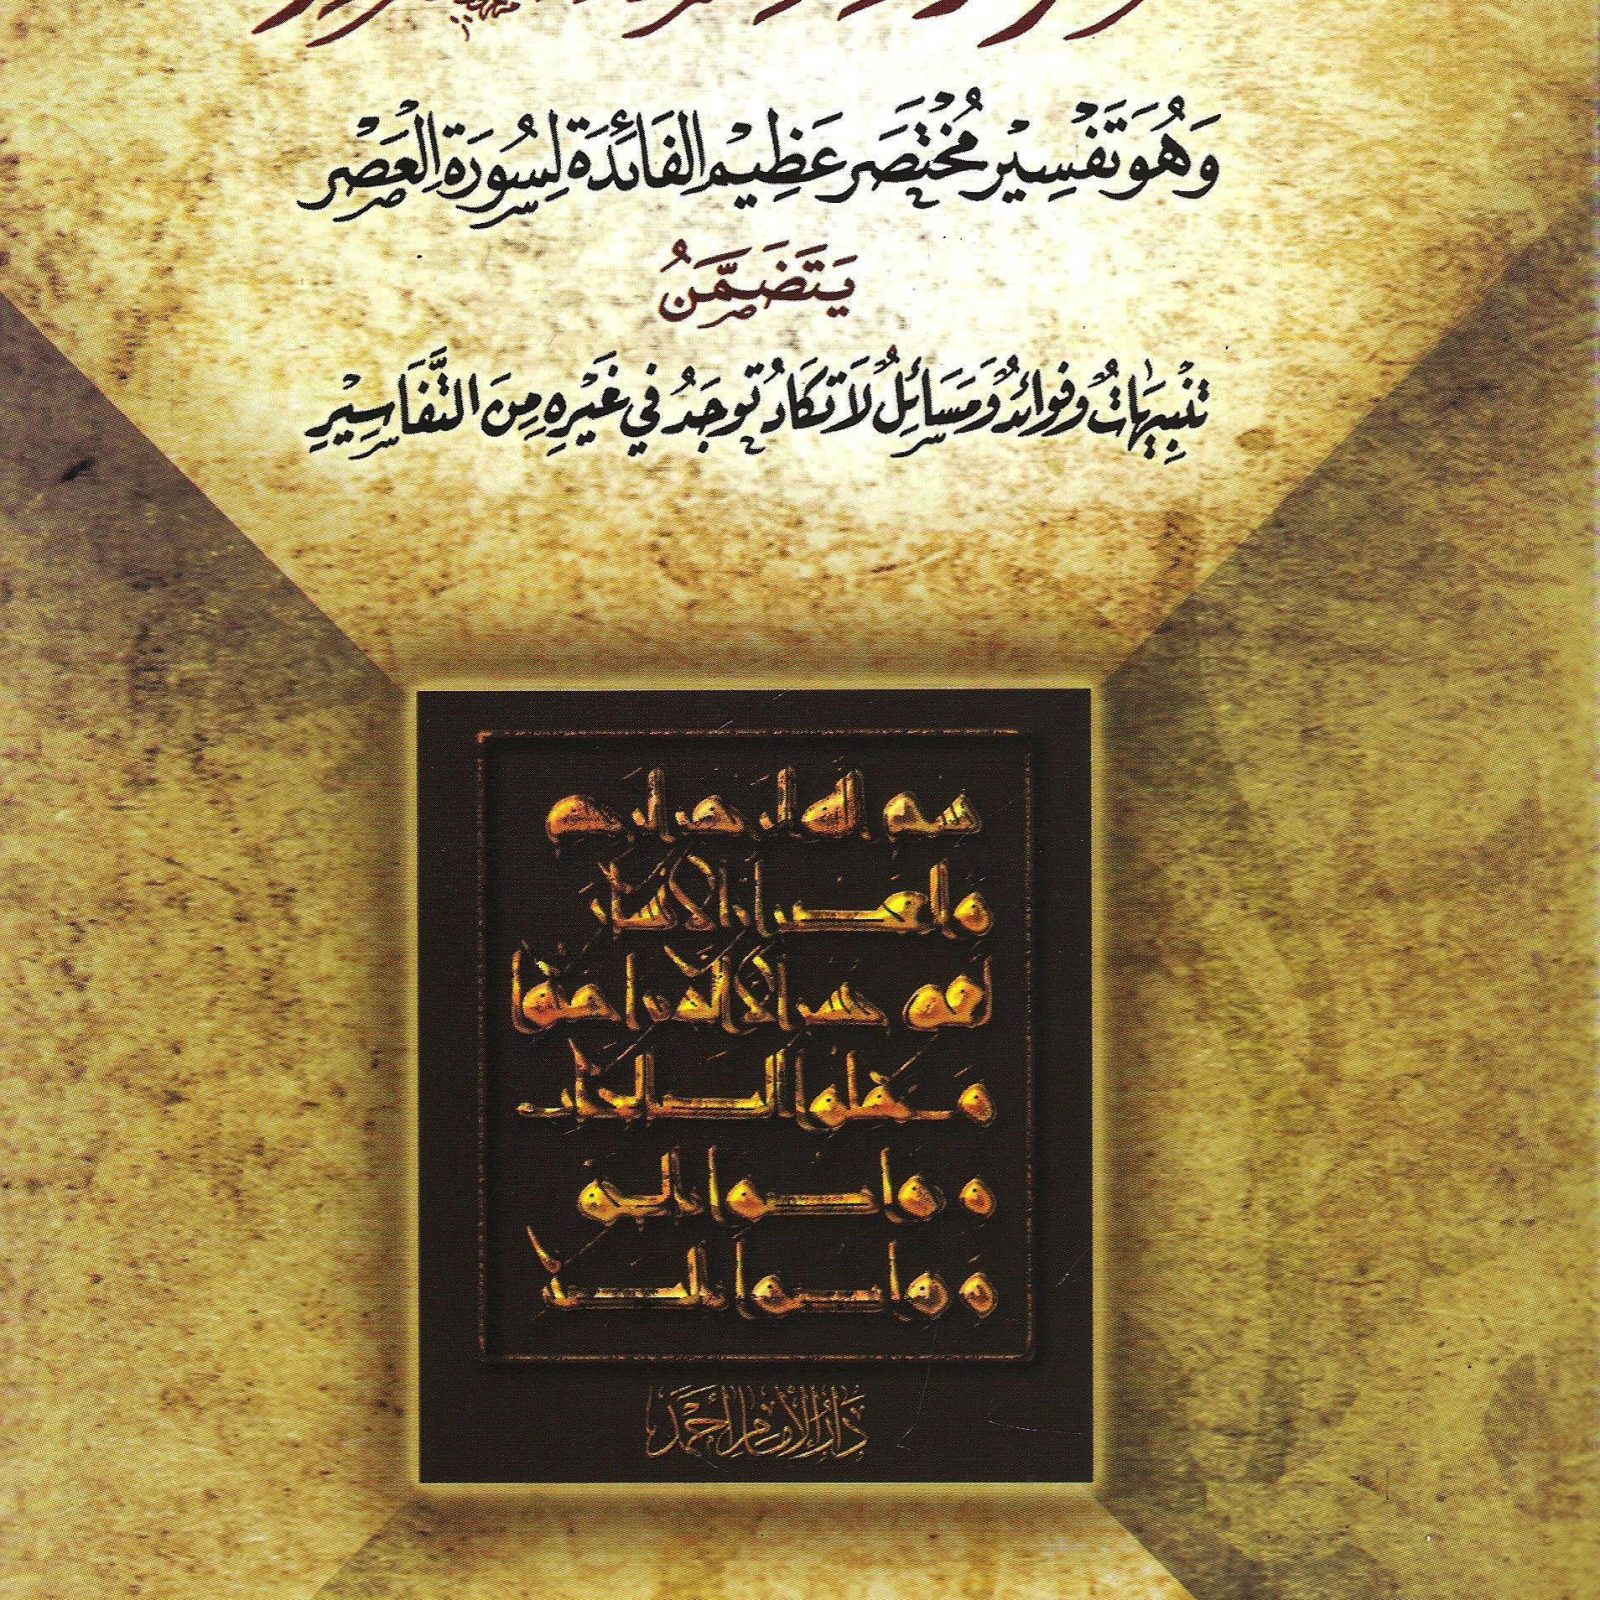 وَهُوَ تَفْسِيْر مُخْتَصَر عَظِيْم الفَائِدَة لِسُورَة العَصْر
يَتَضَمَّنُ
تَنْبِيهَاتٌ وَفَوائِدٌ وَمَسَائِلٌ لاَ تَكَادُ تُوجَدُ فِي غَيْرِهِ مِنَ التَّفَاسِيْرِ
بسم الله الرحمن الرحيم
والعصر ان الانسان
لفي خسر الا الذين امنوا
وعملوا الصلحات
و تواصوا بالحق
و تواصوا بالصبر
دَارُ الإِمَامِ أَحْمَد